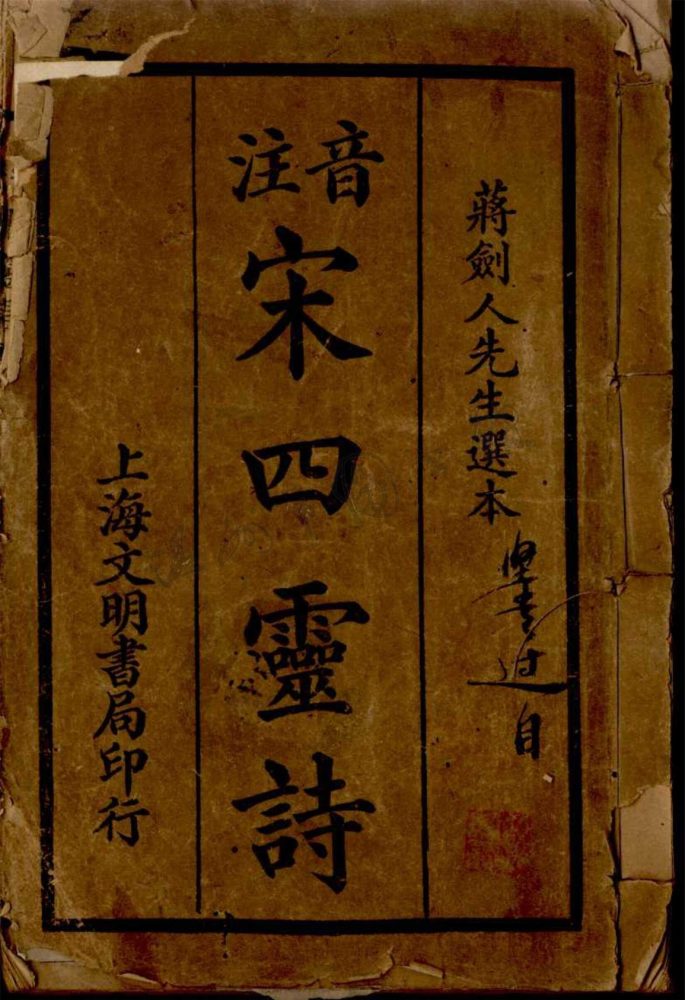 蔣劍人先生選本
過目
音注
宋四靈詩
上海文明書局印行